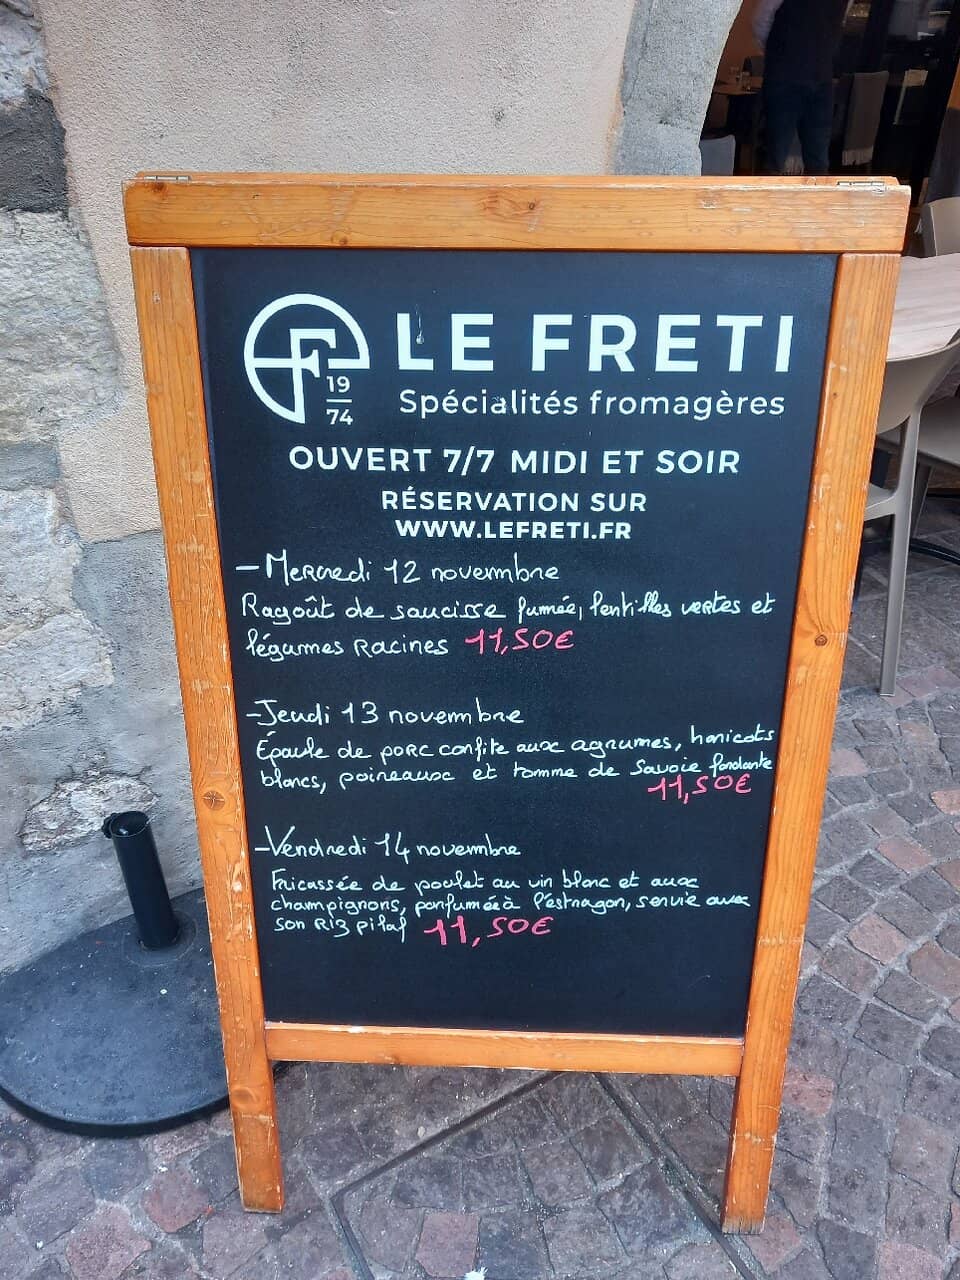 F
19
74
LE FRETI
Spécialités fromagères
OUVERT 7/7 MIDI ET SOIR
RÉSERVATION SUR
WWW.LEFRETI.FR
- Mercredi 12 novembre
Ragoût de saucisse fumée, lentilles vertes et
légumes racines 11,50€
- Jeudi 13 novembre
Épaule de porc confite aux agrumes, haricots
blancs, poireaux et tomme de Savoie fondante
11,50€
- Vendredi 14 novembre
Fricassée de poulet au vin blanc et aux
champignons, parfumée à l'estragon, servie avec
son riz pilaf 11,50€